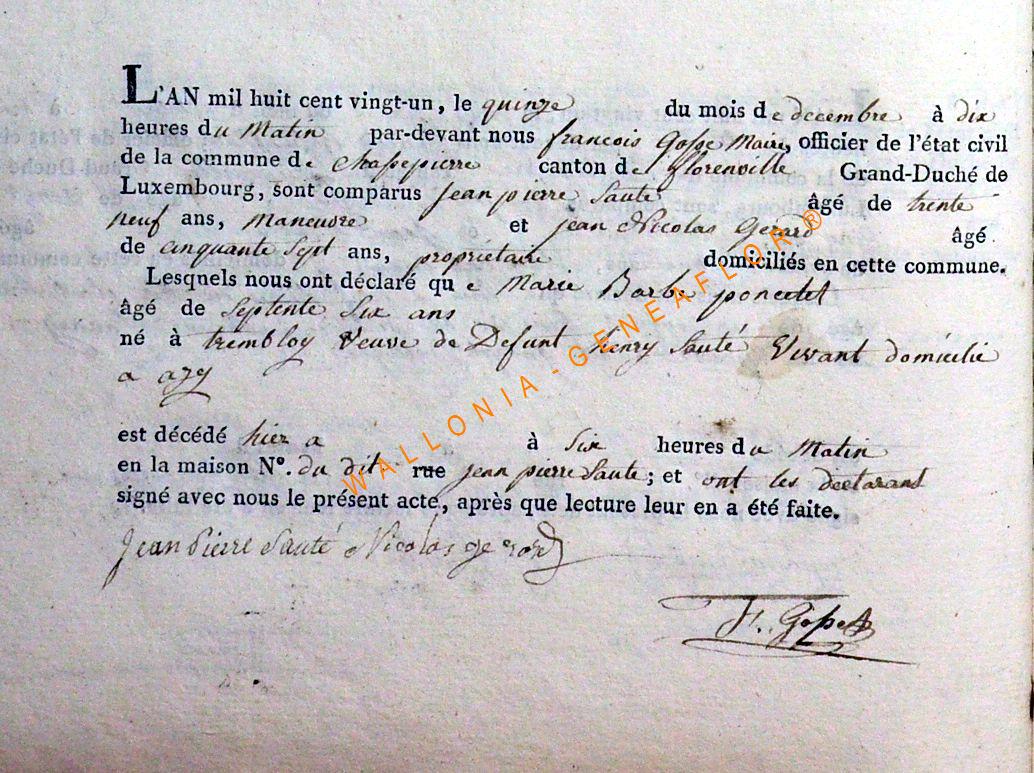 L'AN mil huit cent vingt-un, le quinze du mois de decembre à dix
heures du Matin par-devant nous francois Gosse Maire, officier de l'état civil
de la commune de chassepierre canton de florenville Grand-Duché de
Luxembourg, sont comparus jean pierre Sauté âgé de trente
neuf ans, Maneuvre et jean Nicolas Gerard âgé
de cinquante Sept ans, propriétaire domiciliés en cette commune.
Lesquels nous ont déclaré que Marie Barbe poncelet
âgé de Septente Six ans
né à trembloy Veuve de Defunt henry Sauté Vivant domicilié
a azy
est décédé hier a à Six heures du Matin
en la maison N°. du dit rue jean pierre Sauté; et ont les declarant
signé avec nous le présent acte, après que lecture leur en a été faite.
Jean Pierre Sauté Nicolas gerard
F. Gosse
WALLONIA - GENEAFLOR ®